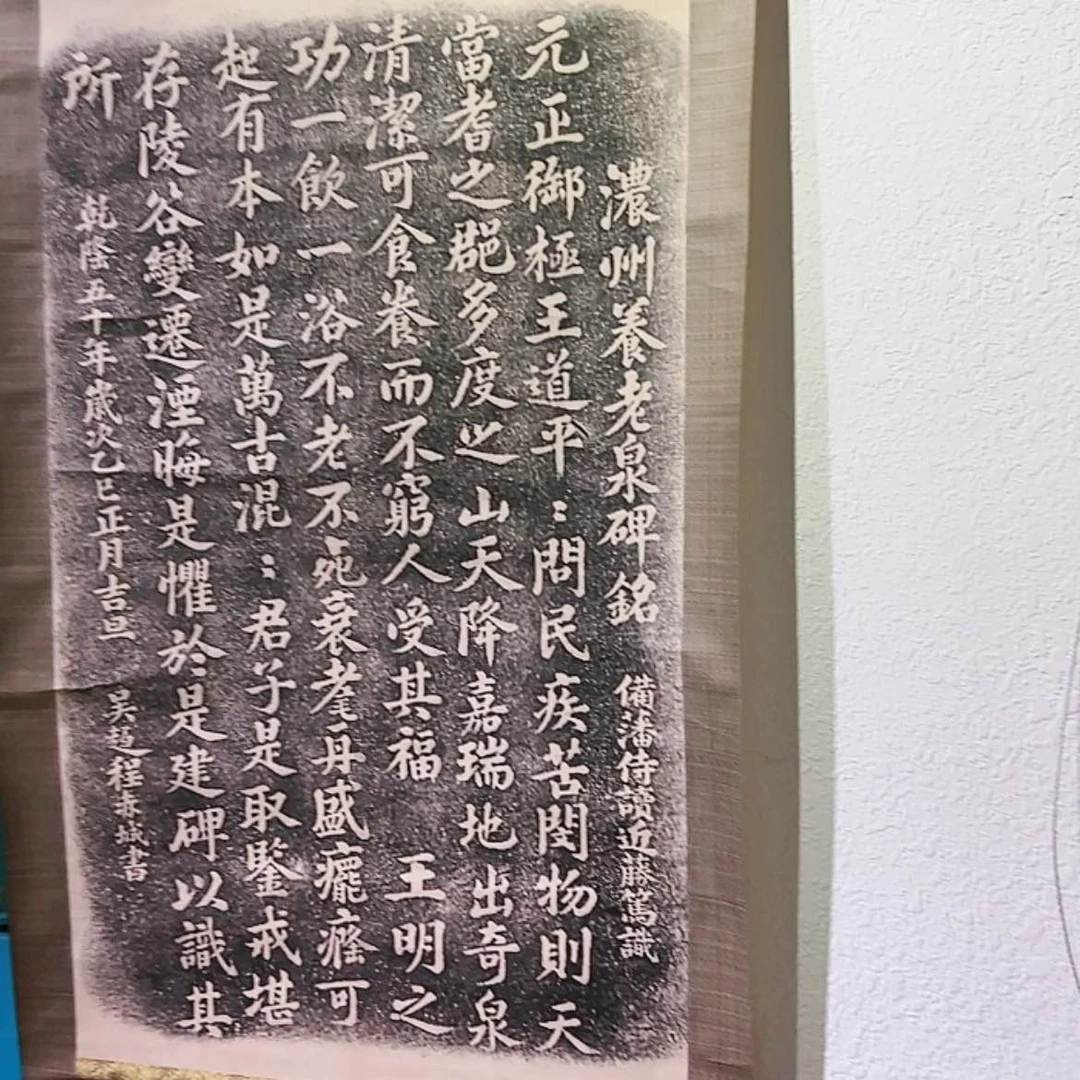 濃州養老泉碑銘 備藩侍讀近藤篤識
元正御極王道平〻問民疾苦閔物則天
當耆之郡多度之山天降嘉瑞地出奇泉
清潔可食養而不窮人受其福 王明之
功一飲一浴不老不死衰耄再盛癃癃可
起有本如是萬古混〻君子是取鑒戒堪
存陵谷變遷湮晦是懼於是建碑以識其
所 乾隆五十年歲次乙巳正月吉旦 吳趨程赤城書